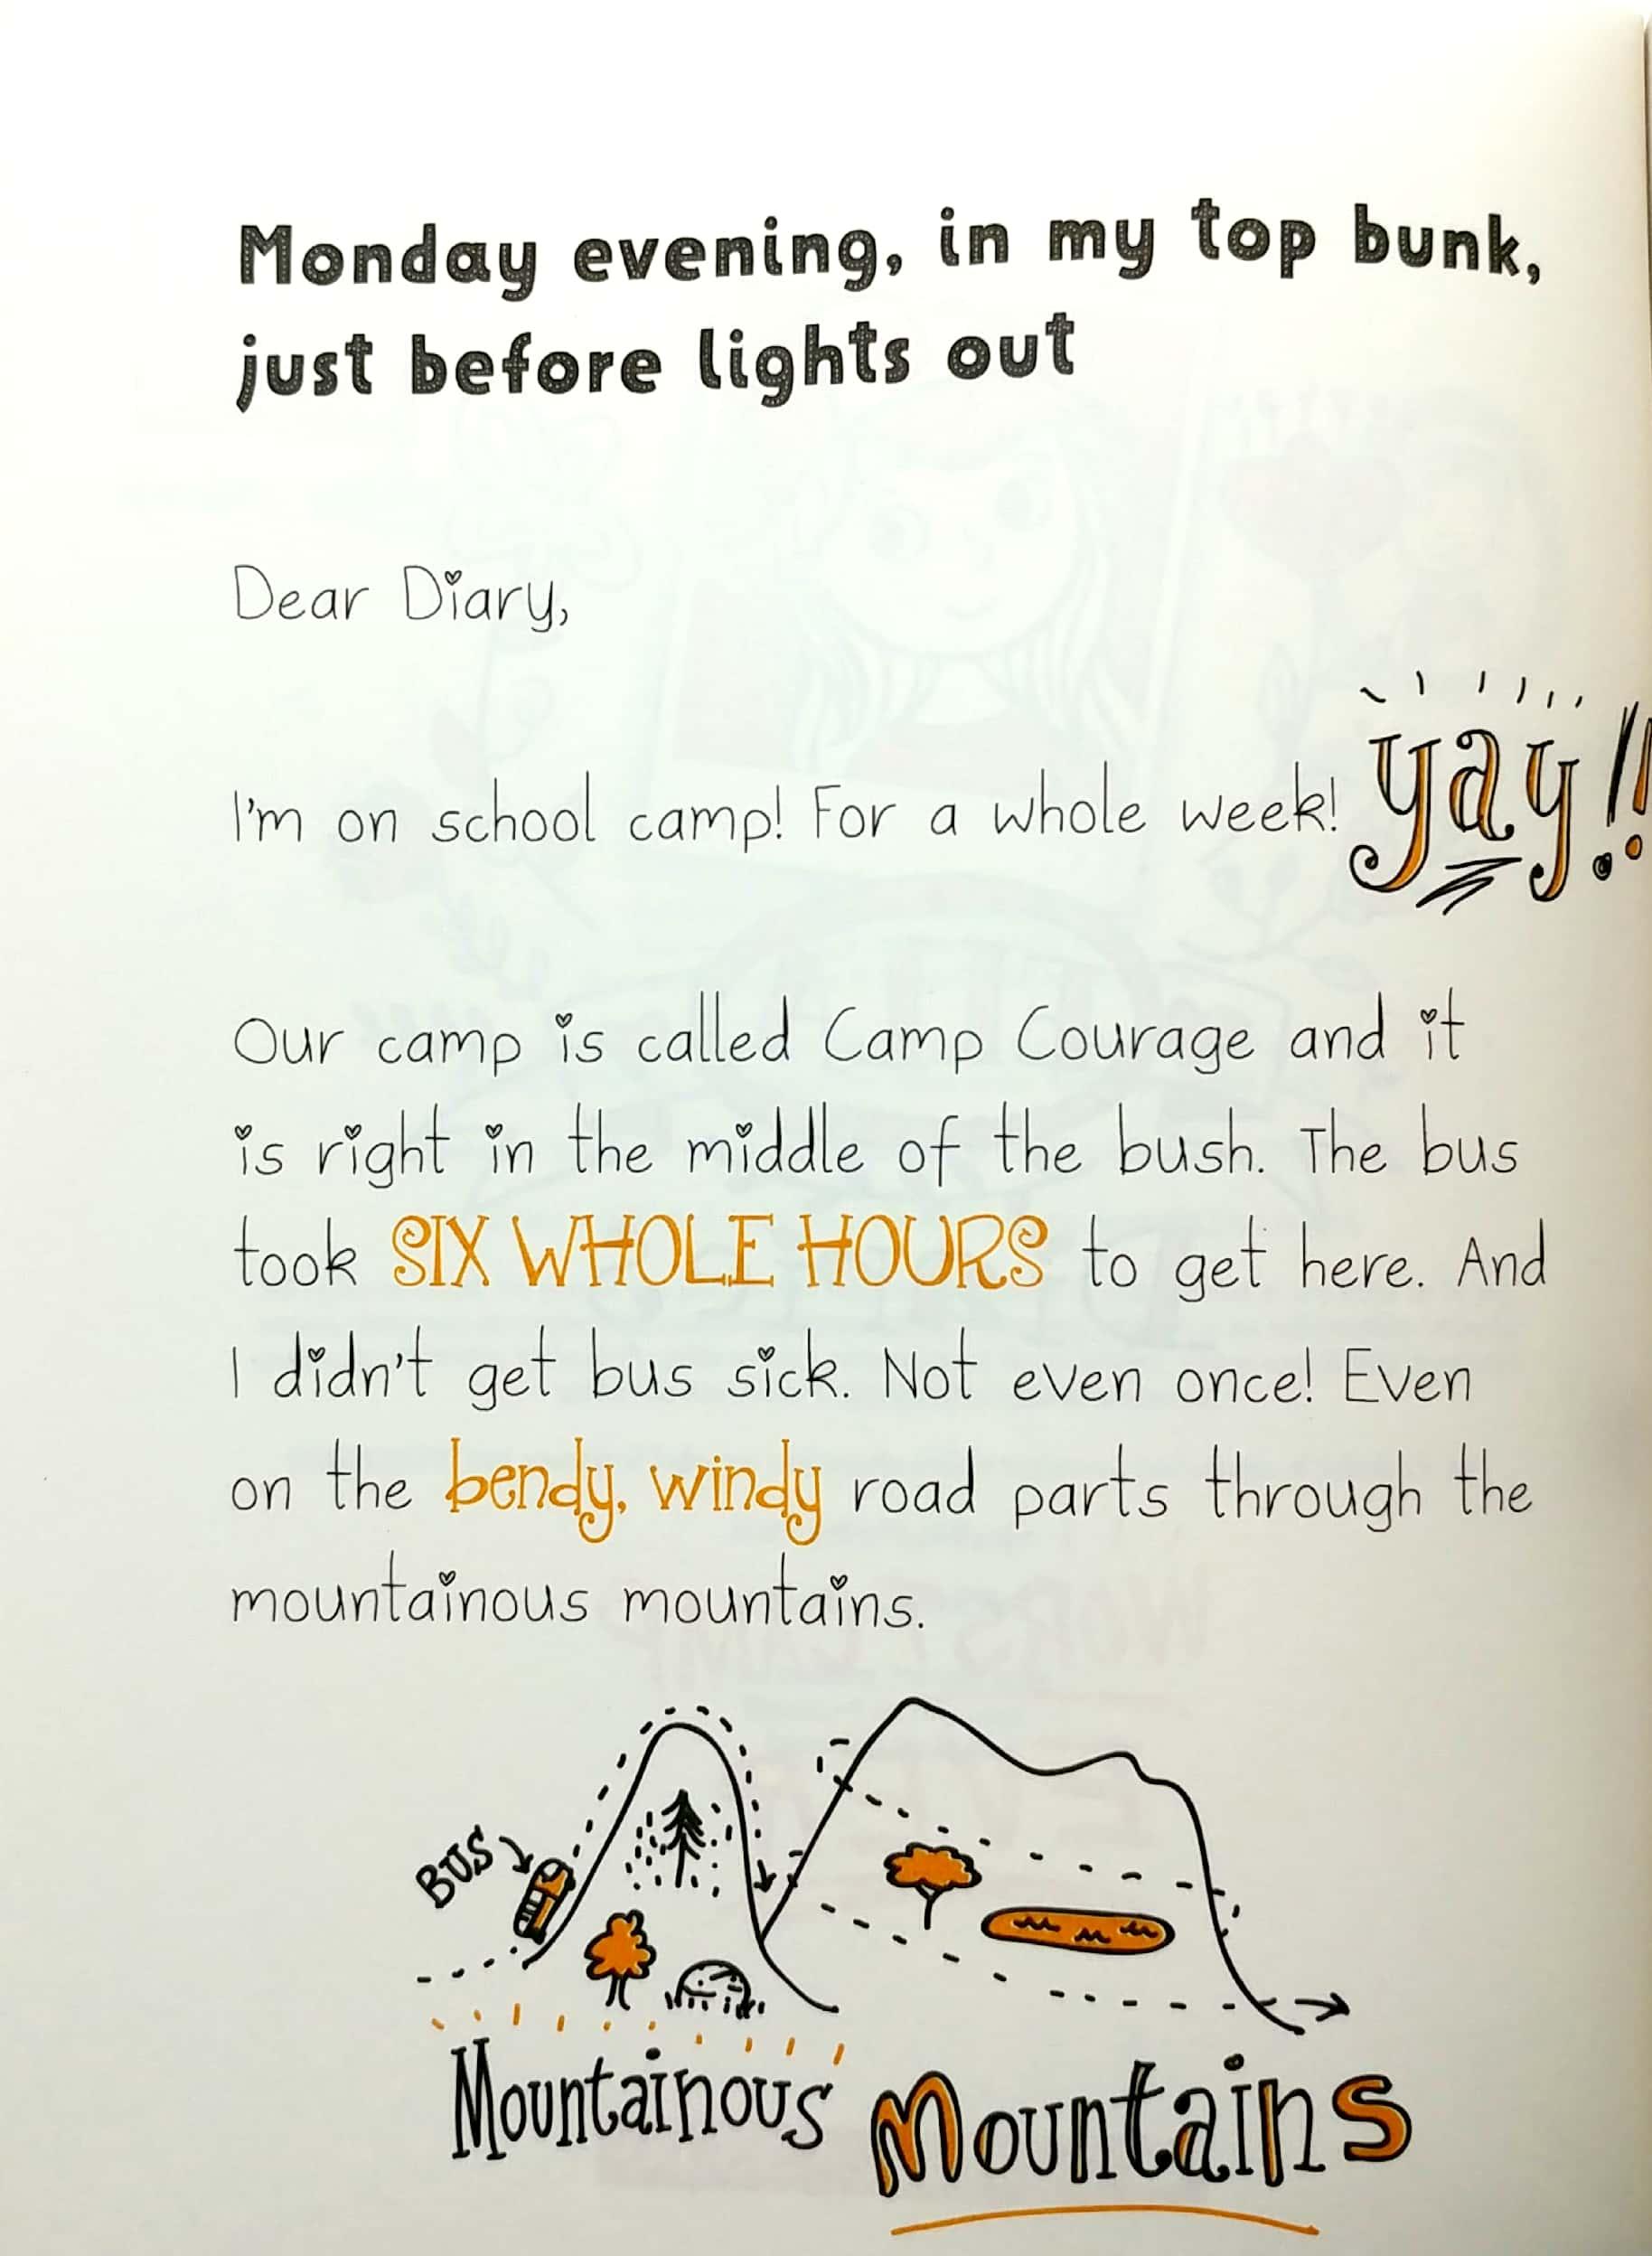 Monday evening, in my top bunk,
just before lights out
Dear Diary,
I'm on school camp! For a whole week! yay!!
Our camp is called Camp Courage and it
is right in the middle of the bush. The bus
took SIX WHOLE HOURS to get here. And
I didn't get bus sick. Not even once! Even
on the bendy, windy road parts through the
mountainous mountains.
BUS
Mountainous Mountains